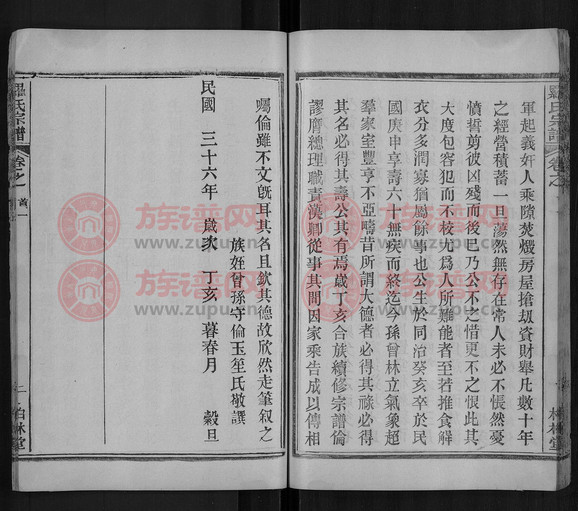 軍起義奸人乘隙焚燬房屋搶刼資財舉凡數十年
之經營積蓄一旦蕩然無存在常人未必不悵然憂
憤誓剪彼凶殘而後巳乃公不之惜更不之恨此其
大度包容犯而不校尤爲人所難能者至若推食解
衣分多潤寡猶屬餘事也公生於同治癸亥卒於民
國庚申享壽六十無疾而終迄今孫曾林立氣象超
羣家室豐亨不亞疇昔所謂大德者必得其祿必得
其名必得其壽公其有焉歲丁亥合族續修宗譜倫
謬膺總理職責漢卿從事其間因家乘告成以傳相
羅氏宗譜
卷之
柏林堂
囑倫雖不文旣耳其名且欽其德故欣然走筆叙之
族姪曾孫守倫玉笙氏敬譔
民國 三十六年 歲次 丁亥 暮春月 穀旦
羅氏宗譜
卷之首一
二
柏林堂
族谱网
www.zupu.cn
族谱网
www.zupu.cn
族谱网
www.zupu.cn
族谱网
www.zupu.cn